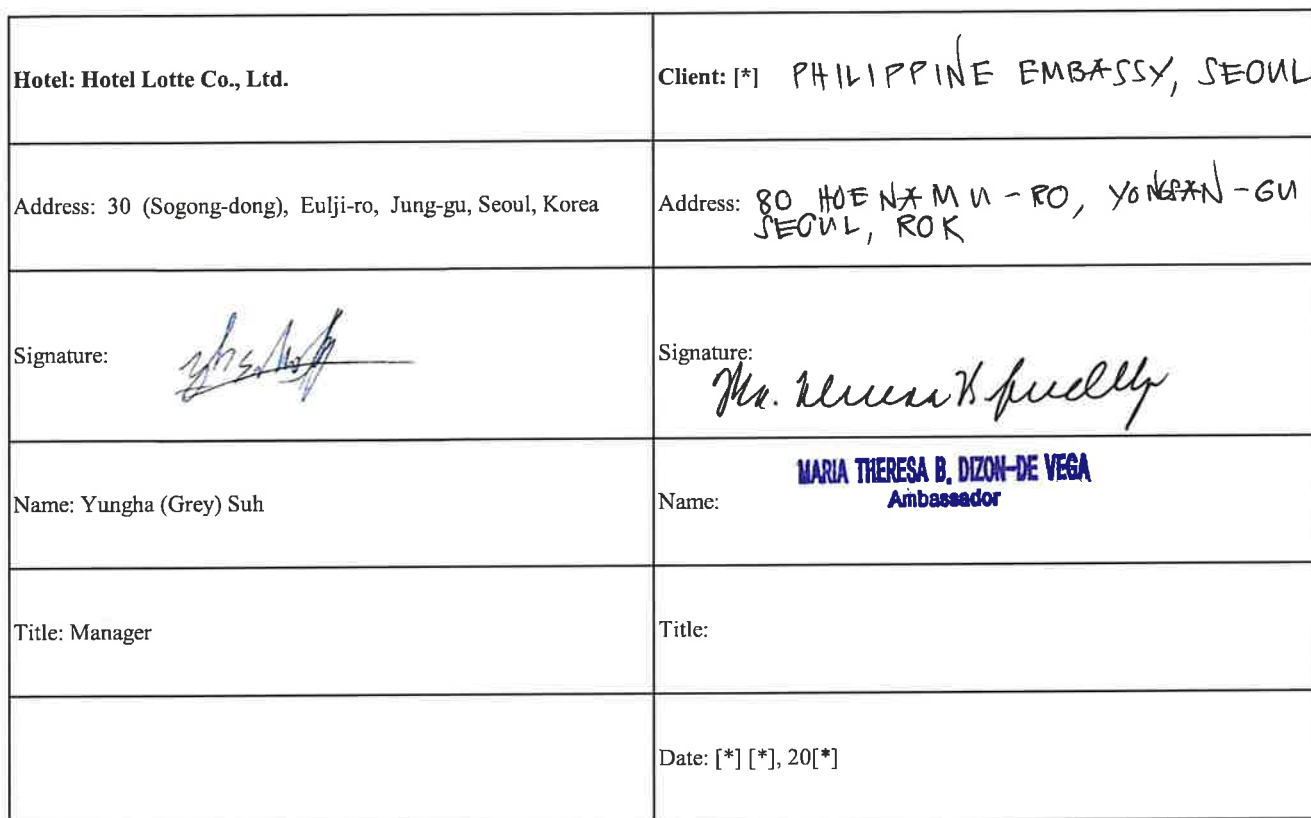 Hotel: Hotel Lotte Co., Ltd.
Client: [*] PHILIPPINE EMBASSY, SEOUL
Address: 30 (Sogong-dong), Eulji-ro, Jung-gu, Seoul, Korea
Address: 80 HOENAMU-RO, YONGSAN-GU
SEOUL, ROK
Signature:
Signature:
Name: Yungha (Grey) Suh
MARIA THERESA B. DIZON-DE VEGA
Ambassador
Name:
Title: Manager
Title:
Date: [*] [*], 20[*]